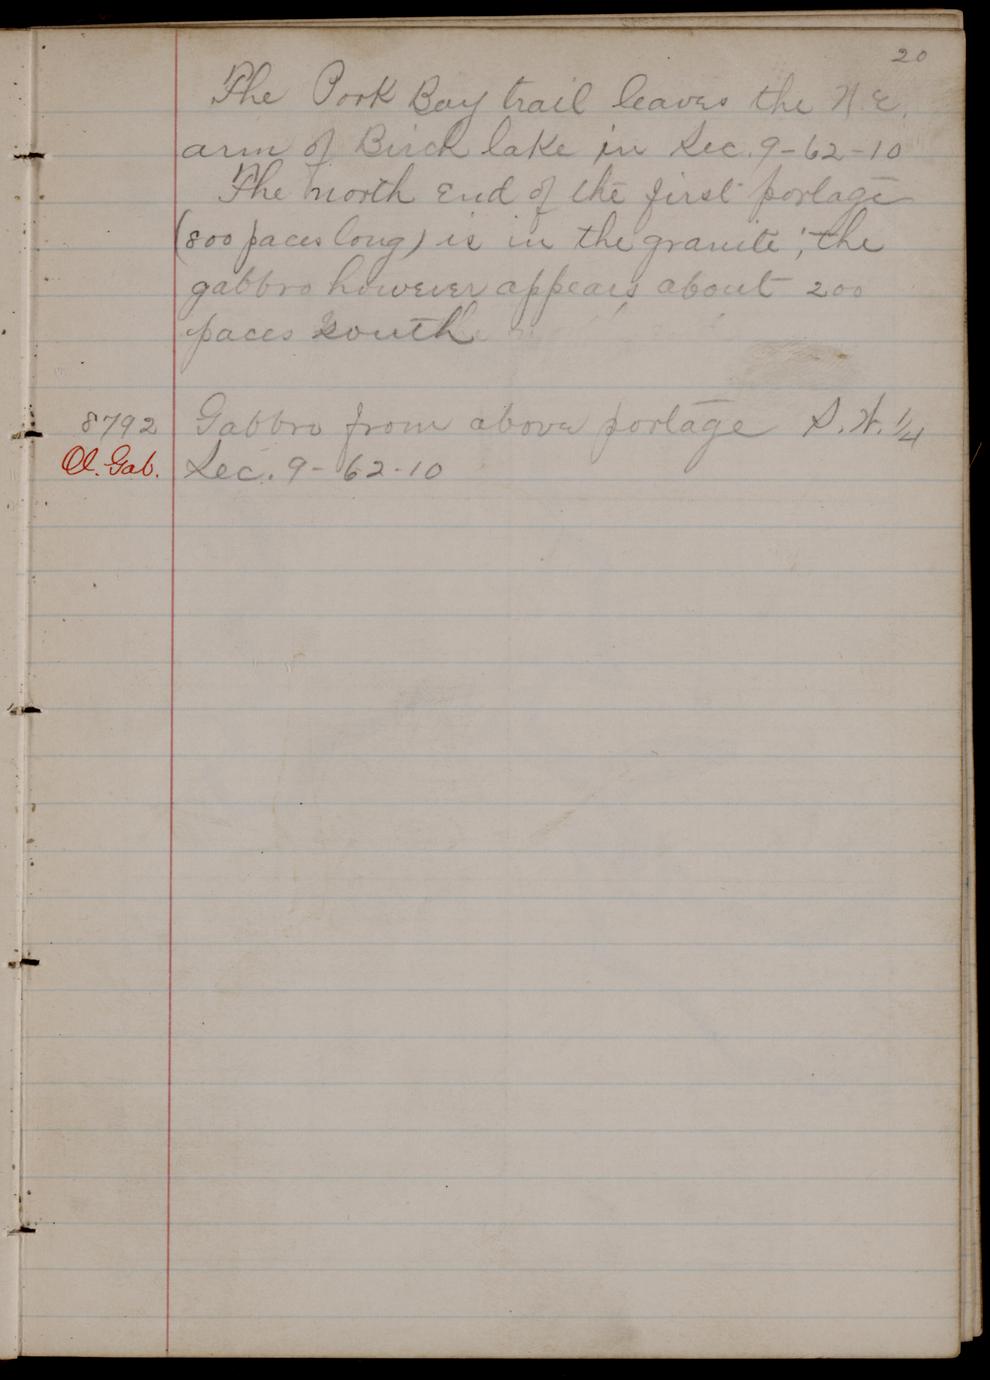 20
The Pork Bay trail leaves the N.E.
arm of Birch lake in Sec. 9-62-10
The north end of the first portage
(800 paces long) is in the granite; the
gabbro however appears about 200
paces south
8792 Gabbro from above portage S.W. 1/4
Ol. Gab. Sec. 9-62-10